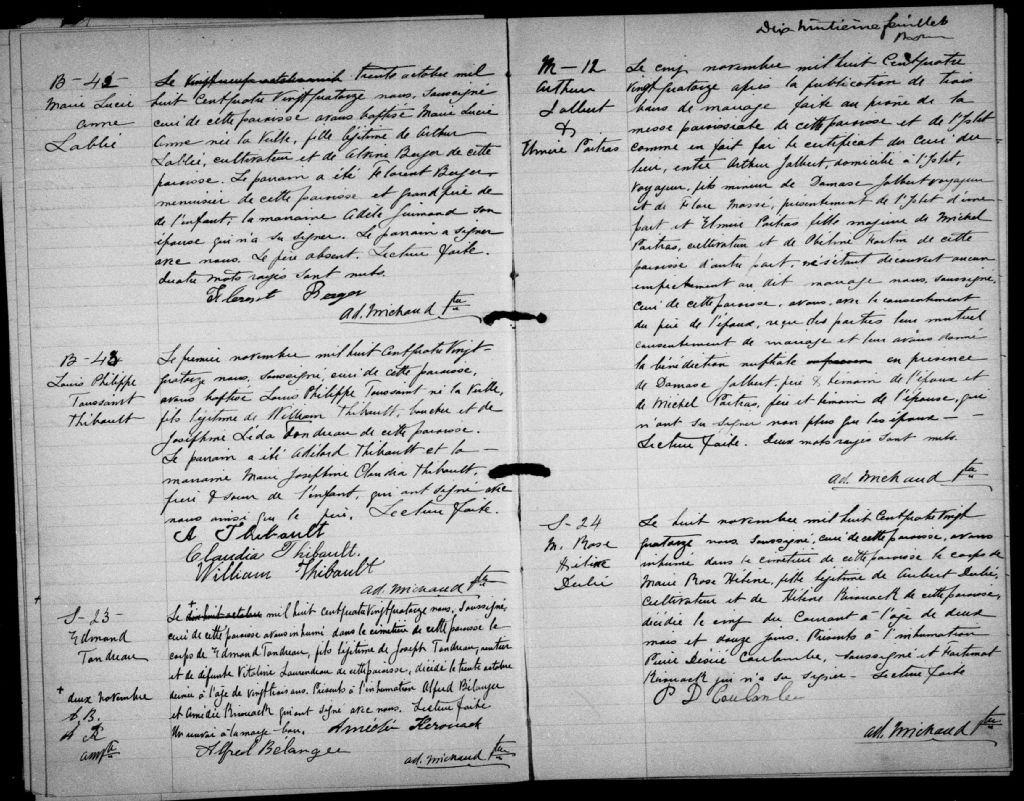 B-42
Marie Lucie
Anne
Lablie
Le vingt neuf octobre mil trente octobre mil
huit cent quatre vingt quatorze nous, soussigné
curé de cette paroisse avons baptisé Marie Lucie
Anne née la veille, fille légitime de Arthur
Lablie, cultivateur et de Alvine Berger de cette
paroisse. Le parrain a été Florent Berger
menuisier de cette paroisse et grand père de
de l'enfant, la marraine Adèle Guimond son
épouse qui n'a su signer. Le parrain a signer
avec nous. Le père absent. Lecture faite.
Quatre mots rayés sont nuls.
Florent Berger
Ad. Michaud Ptre
B-43
Louis Philippe
Toussaint
Thibault
Le premier novembre mil huit cent quatre vingt-
quatorze nous, soussigné, curé de cette paroisse,
avons baptisé Louis Philippe Toussaint né la veille,
fils légitime de William Thibault, boucher et de
Joséphine Léda Tondreau de cette paroisse.
Le parrain a été Adélard Thibault et la -
marraine Marie Joséphine Claudia Thibault,
frère & soeur de l'enfant, qui ont signé avec
nous ainsi que le père. Lecture faite.
A Thibault
Claudia Thibault.
William Thibault
Ad. Michaud Ptre
S-23-
Edmond
Tondreau
+ deux novembre
A. B.
A K
amptre
Le + dix huit octobre mil huit cent quatre vingt quatorze nous, soussigné,
curé de cette paroisse avons inhumé dans le cimetière de cette paroisse le
corps de Edmond Tondreau, fils légitime de Joseph Tondreau, rentier
et de défunte Vitaline Laurendeau de cette paroisse, décédé le trente octobre
dernier à l'âge de vingt trois ans. Présents à l'inhumation Alfred Bélanger
et Amédée Kirouack qui ont signé avec nous. Lecture faite
Un renvoi à la marge bon. Amédée Kerouack
Alfred Bélanger
Ad. Michaud Ptre
Dix huitième feuillet
M-12
Arthur
Jalbert
&
Elmire Poitras
Le cinq novembre mil huit cent quatre
vingt quatorze après la publication de trois
bans de mariage faite au prône de la
messe paroissiale de cette paroisse et de l'Islet
comme en fait foi le certificat du curé du
lieu, entre Arthur Jalbert, domicilié à l'Islet,
voyageur, fils mineur de Damase Jalbert voyageur
et de Flore Massé, présentement de l'Islet d'une
part et Elmire Poitras fille majeure de Michel
Poitras, cultivateur et de Philine Fortin de cette
paroisse d'autre part, ne s'étant découvert aucun
empêchement au dit mariage nous, soussigné,
curé de cette paroisse, avons, avec le consentement
du père de l'époux, reçu des parties leur mutuel
consentement de mariage et leur avons donné
la bénédiction nuptiale en présence
de Damase Jalbert, père & témoin de l'époux et
de Michel Poitras, père et témoin de l'épouse, qui
n'ont su signer non plus que les époux -
Lecture faite. Deux mots rayés sont nuls.
Ad. Michaud Ptre
S-24
M. Rose
Hélène
Dubé
Le huit novembre mil huit cent quatre vingt
quatorze nous, soussigné, curé de cette paroisse, avons
inhumé dans le cimetière de cette paroisse le corps de
Marie Rose Hélène, fille légitime de Aubert Dubé,
cultivateur et de Hélène Kirouack de cette paroisse,
décédée le cinq du courant à l'âge de deux
mois et douze jours. Présents à l'inhumation
Pierre Désiré Coulombe, soussigné et Fortunat
Kirouack qui n'a su signer - Lecture faite
P D Coulombe
Ad. Michaud Ptre